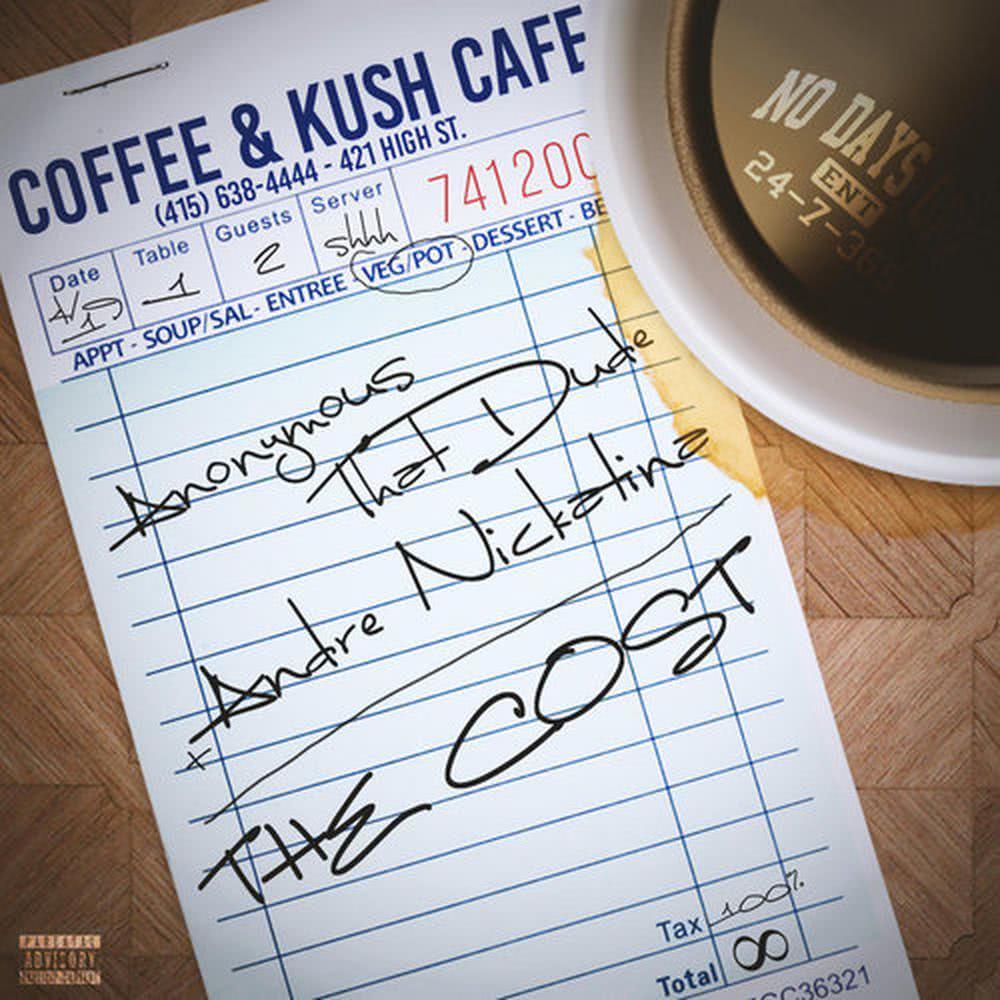 COFFEE & KUSH CAFE
(415) 638-4444 - 421 HIGH ST.
Date Table Guests Server 741200
4/19 1 2 shhh
APPT - SOUP/SAL - ENTREE - VEG/POT - DESSERT - BE
Anonymous
That Dude
Andre Nickatina
x
THE COST
Tax 100%
Total ∞
CC36321
NO DAYS
ENT
24-7-365
PARENTAL
ADVISORY
EXPLICIT CONTENT